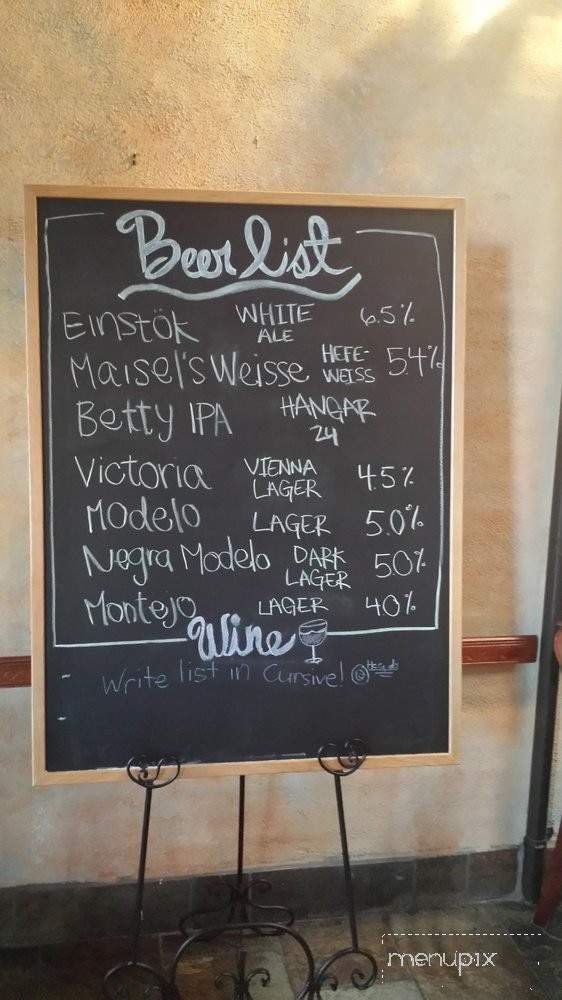 Beer list
Einstök WHITE ALE 6.5%
Maisel's Weisse HEFE-WEISS 5.4%
Betty IPA HANGAR 24
Victoria VIENNA LAGER 4.5%
Modelo LAGER 5.0%
Negra Modelo DARK LAGER 5.0%
Montejo LAGER 4.0%
Wine
Write list in Cursive!
menupix